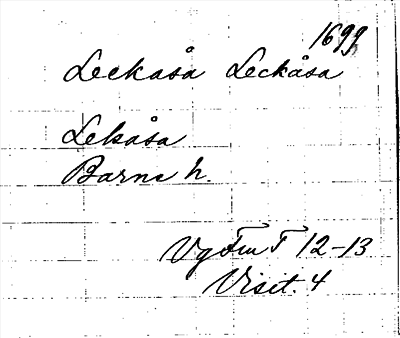 1699
Leckaså Leckåsa
Lekåsa
Barne h.
VgFmT 12-13
Visit. 4